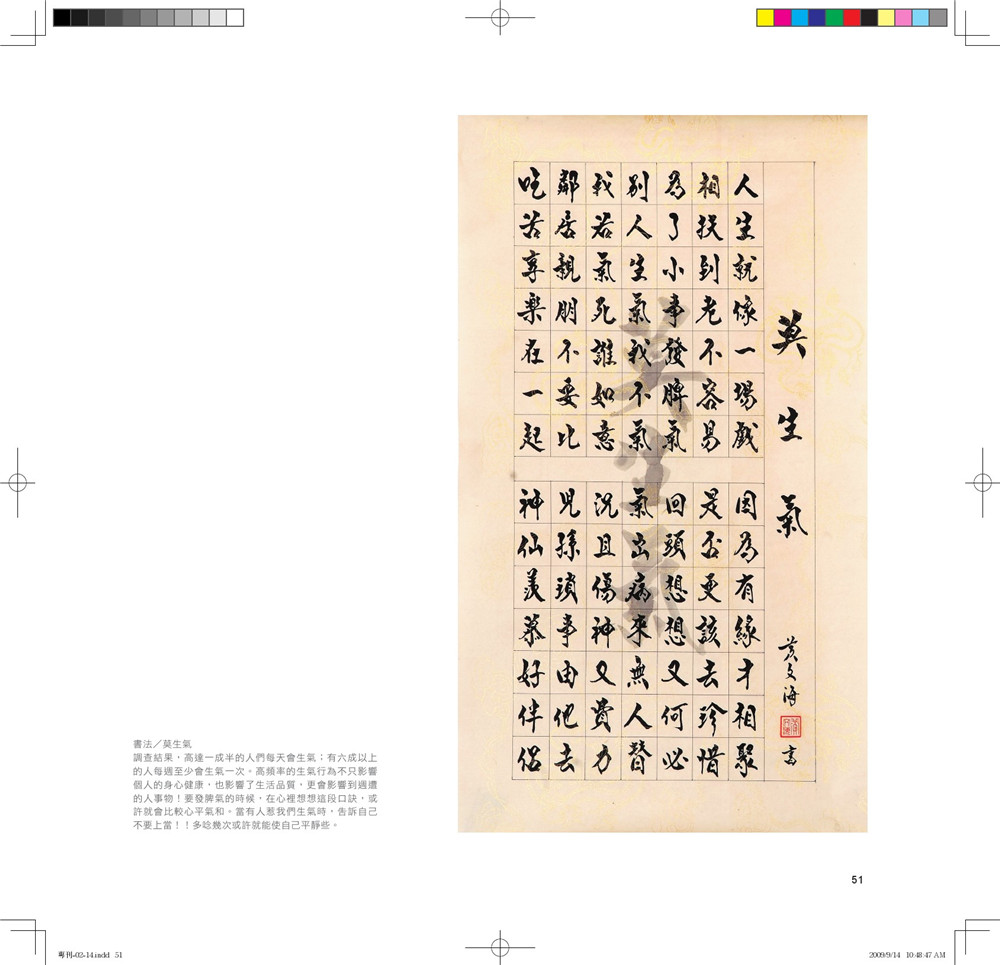 莫生氣
黃文海書
人生就像一場戲
因為有緣才相聚
相扶到老不容易
是否更該去珍惜
為了小事發脾氣
回頭想想又何必
別人生氣我不氣
氣出病來無人替
我若氣死誰如意
況且傷神又費力
鄰居親朋不要比
兒孫瑣事由他去
吃苦享樂在一起
神仙羨慕好伴侶
莫生氣
書法／莫生氣
調查結果，高達一成半的人們每天會生氣；有六成以上
的人每週至少會生氣一次。高頻率的生氣行為不只影響
個人的身心健康，也影響了生活品質，更會影響到週遭
的人事物！要發脾氣的時候，在心裡想想這段口訣，或
許就會比較心平氣和。當有人惹我們生氣時，告訴自己
不要上當！！多唸幾次或許就能使自己平靜些。
51
專刊-02-14.indd 51
2009/9/14 10:48:47 AM